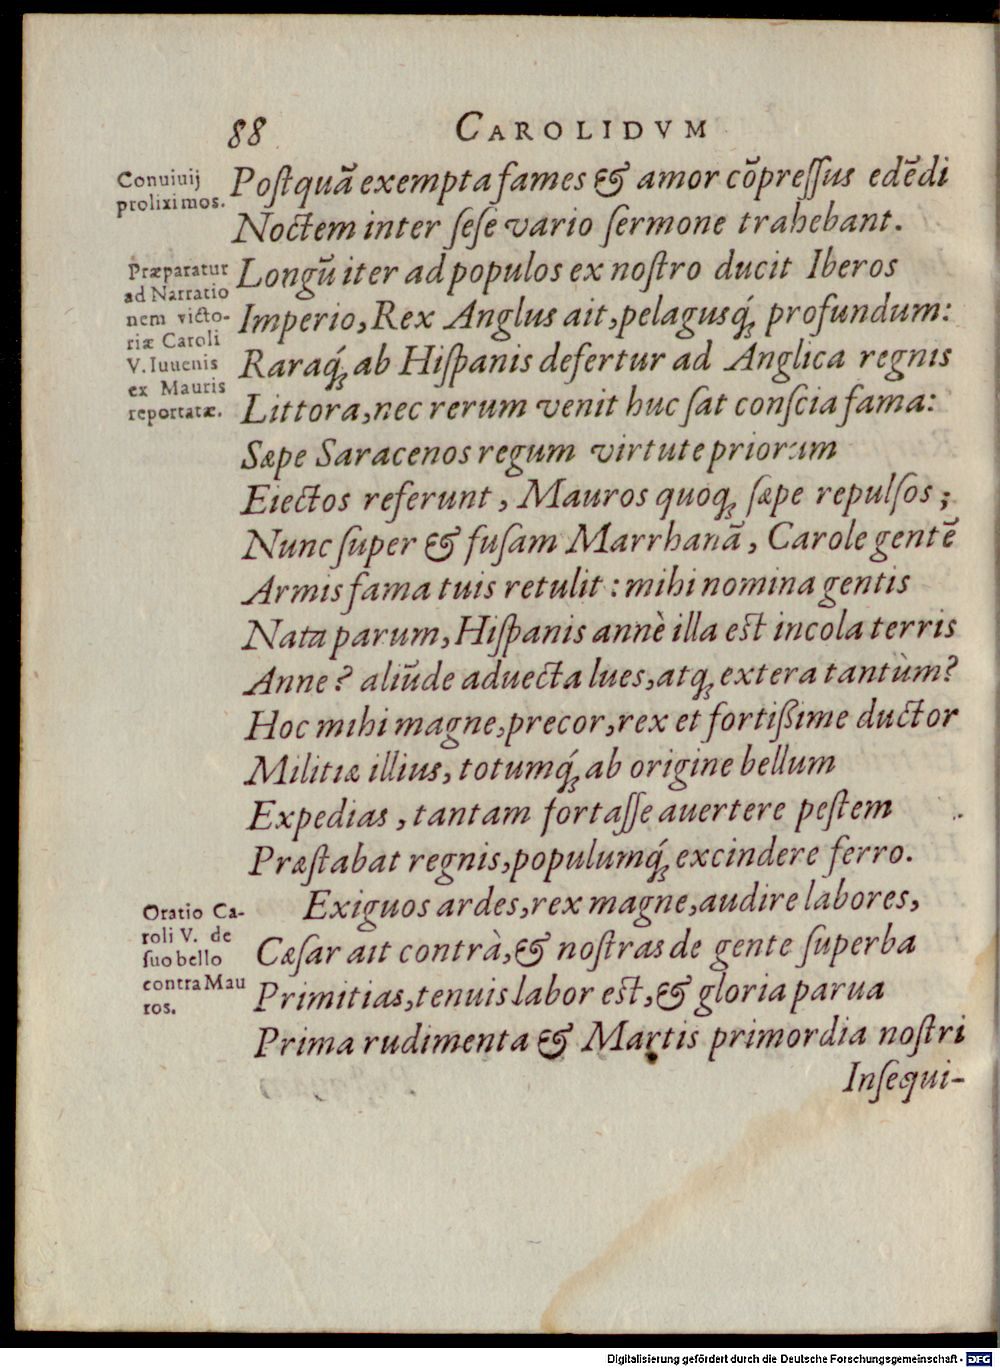 88 CAROLIDVM
Conuiuij
proliximos.
Poſtquā exempta fames & amor cōpreſſus edēdi
Noctem inter ſeſe vario ſermone trahebant.
Præparatur
ad Narratio
nem victo-
riæ Caroli
V. Iuuenis
ex Mauris
reportatæ.
Longū iter ad populos ex noſtro ducit Iberos
Imperio, Rex Anglus ait, pelagusq́ꝫ profundum:
Raraq́ꝫ ab Hiſpanis defertur ad Anglica regnis
Littora, nec rerum venit huc ſat conſcia fama:
Sæpe Saracenos regum virtute priorum
Eiectos referunt, Mauros quoqꝫ ſæpe repulſos;
Nunc ſuper & fuſam Marrhanā, Carole gentē
Armis fama tuis retulit: mihi nomina gentis
Nata parum, Hiſpanis annè illa est incola terris
Anne? aliūde aduecta lues, atqꝫ extera tantùm?
Hoc mihi magne, precor, rex et fortißime ductor
Militiæ illius, totumq́ꝫ ab origine bellum
Expedias, tantam fortaſſe auertere peſtem
Præſtabat regnis, populumq́ꝫ excindere ferro.
Oratio Ca-
roli V. de
ſuo bello
contra Mau
ros.
Exiguos ardes, rex magne, audire labores,
Cæſar ait contrà, & noſtras de gente ſuperba
Primitias, tenuis labor est, & gloria parua
Prima rudimenta & Martis primordia noſtri
Inſequi-
Digitalisierung gefördert durch die Deutsche Forschungsgemeinschaft - DFG